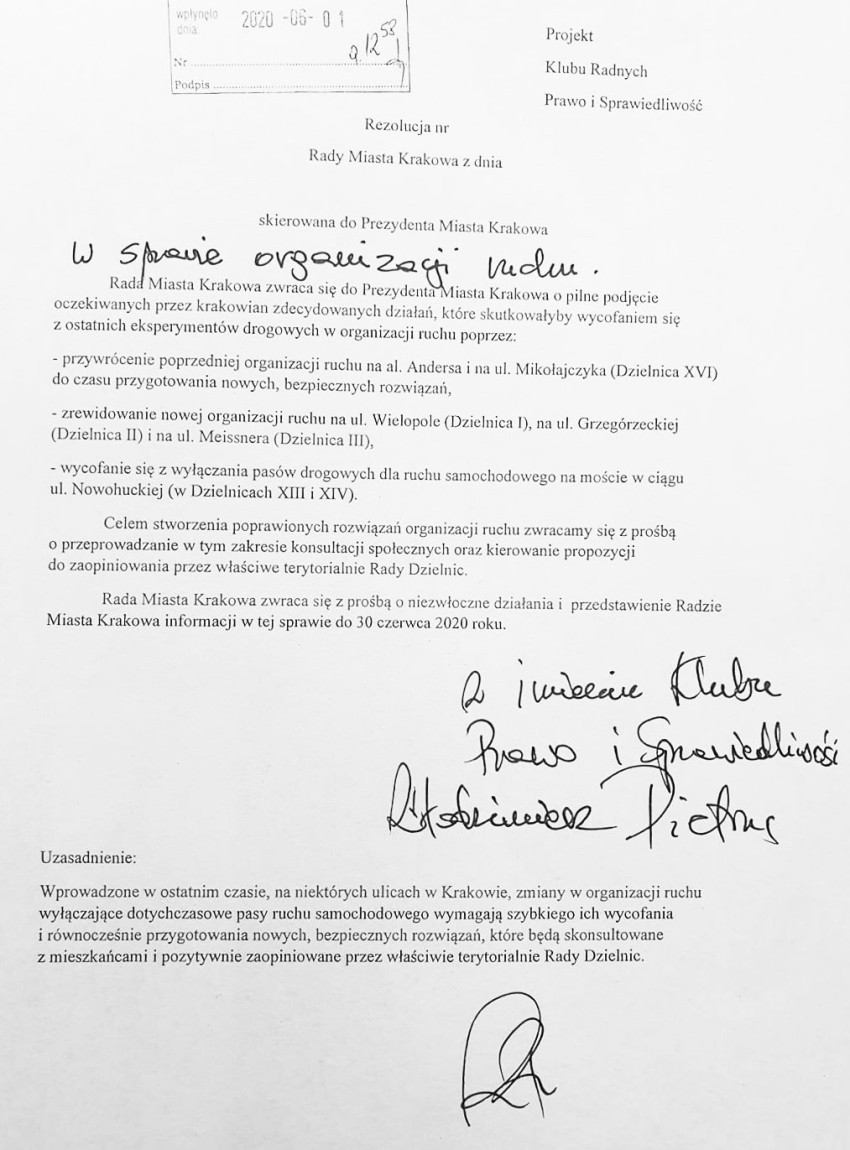 wpłynęło
dnia:
2020 -06- 0 1
g. 12 58
Nr
Podpis
Projekt
Klubu Radnych
Prawo i Sprawiedliwość
Rezolucja nr
Rady Miasta Krakowa z dnia
skierowana do Prezydenta Miasta Krakowa
w sprawie organizacji ruchu.
Rada Miasta Krakowa zwraca się do Prezydenta Miasta Krakowa o pilne podjęcie
oczekiwanych przez krakowian zdecydowanych działań, które skutkowałyby wycofaniem się
z ostatnich eksperymentów drogowych w organizacji ruchu poprzez:
- przywrócenie poprzedniej organizacji ruchu na al. Andersa i na ul. Mikołajczyka (Dzielnica XVI)
do czasu przygotowania nowych, bezpiecznych rozwiązań,
- zrewidowanie nowej organizacji ruchu na ul. Wielopole (Dzielnica I), na ul. Grzegórzeckiej
(Dzielnica II) i na ul. Meissnera (Dzielnica III),
- wycofanie się z wyłączania pasów drogowych dla ruchu samochodowego na moście w ciągu
ul. Nowohuckiej (w Dzielnicach XIII i XIV).
Celem stworzenia poprawionych rozwiązań organizacji ruchu zwracamy się z prośbą
o przeprowadzanie w tym zakresie konsultacji społecznych oraz kierowanie propozycji
do zaopiniowania przez właściwe terytorialnie Rady Dzielnic.
Rada Miasta Krakowa zwraca się z prośbą o niezwłoczne działania i przedstawienie Radzie
Miasta Krakowa informacji w tej sprawie do 30 czerwca 2020 roku.
w imieniu Klubu
Prawo i Sprawiedliwości
Włodzimierz Pietrus
Uzasadnienie:
Wprowadzone w ostatnim czasie, na niektórych ulicach w Krakowie, zmiany w organizacji ruchu
wyłączające dotychczasowe pasy ruchu samochodowego wymagają szybkiego ich wycofania
i równocześnie przygotowania nowych, bezpiecznych rozwiązań, które będą skonsultowane
z mieszkańcami i pozytywnie zaopiniowane przez właściwie terytorialnie Rady Dzielnic.